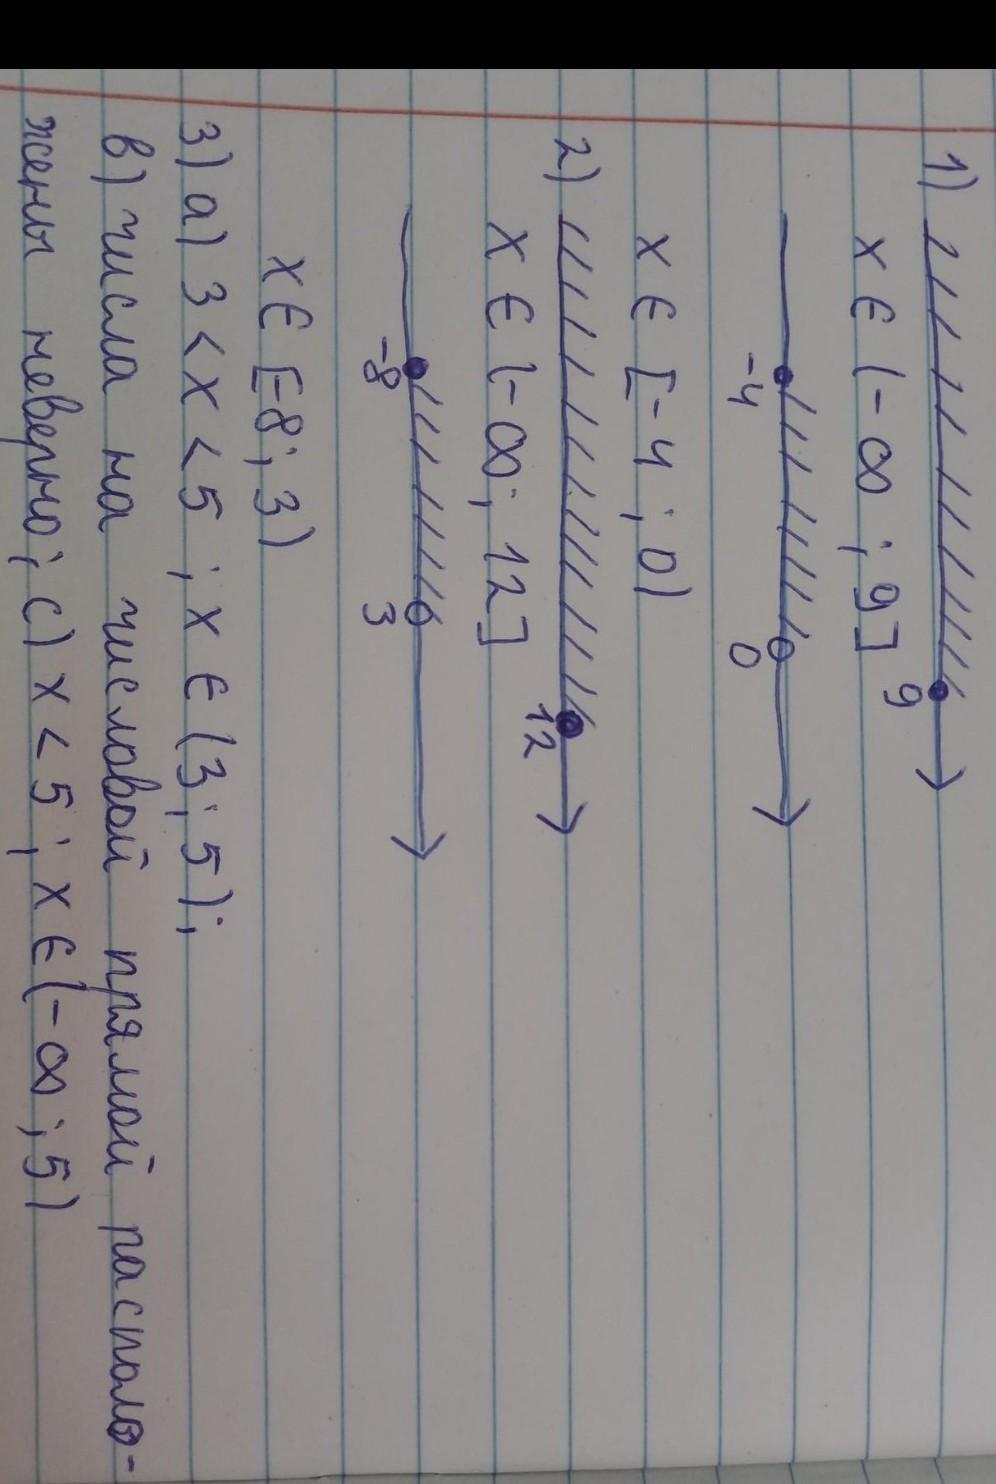 1)
9
x ∈ (-∞ ; 9]
-4 0
x ∈ [-4 ; 0)
2)
12
x ∈ (-∞; 12]
-8 3
x ∈ [-8; 3)
3) а) 3 < x < 5 ; x ∈ (3; 5);
в) числа на числовой прямой располо-
жены неверно; с) x < 5; x ∈ (-∞; 5)